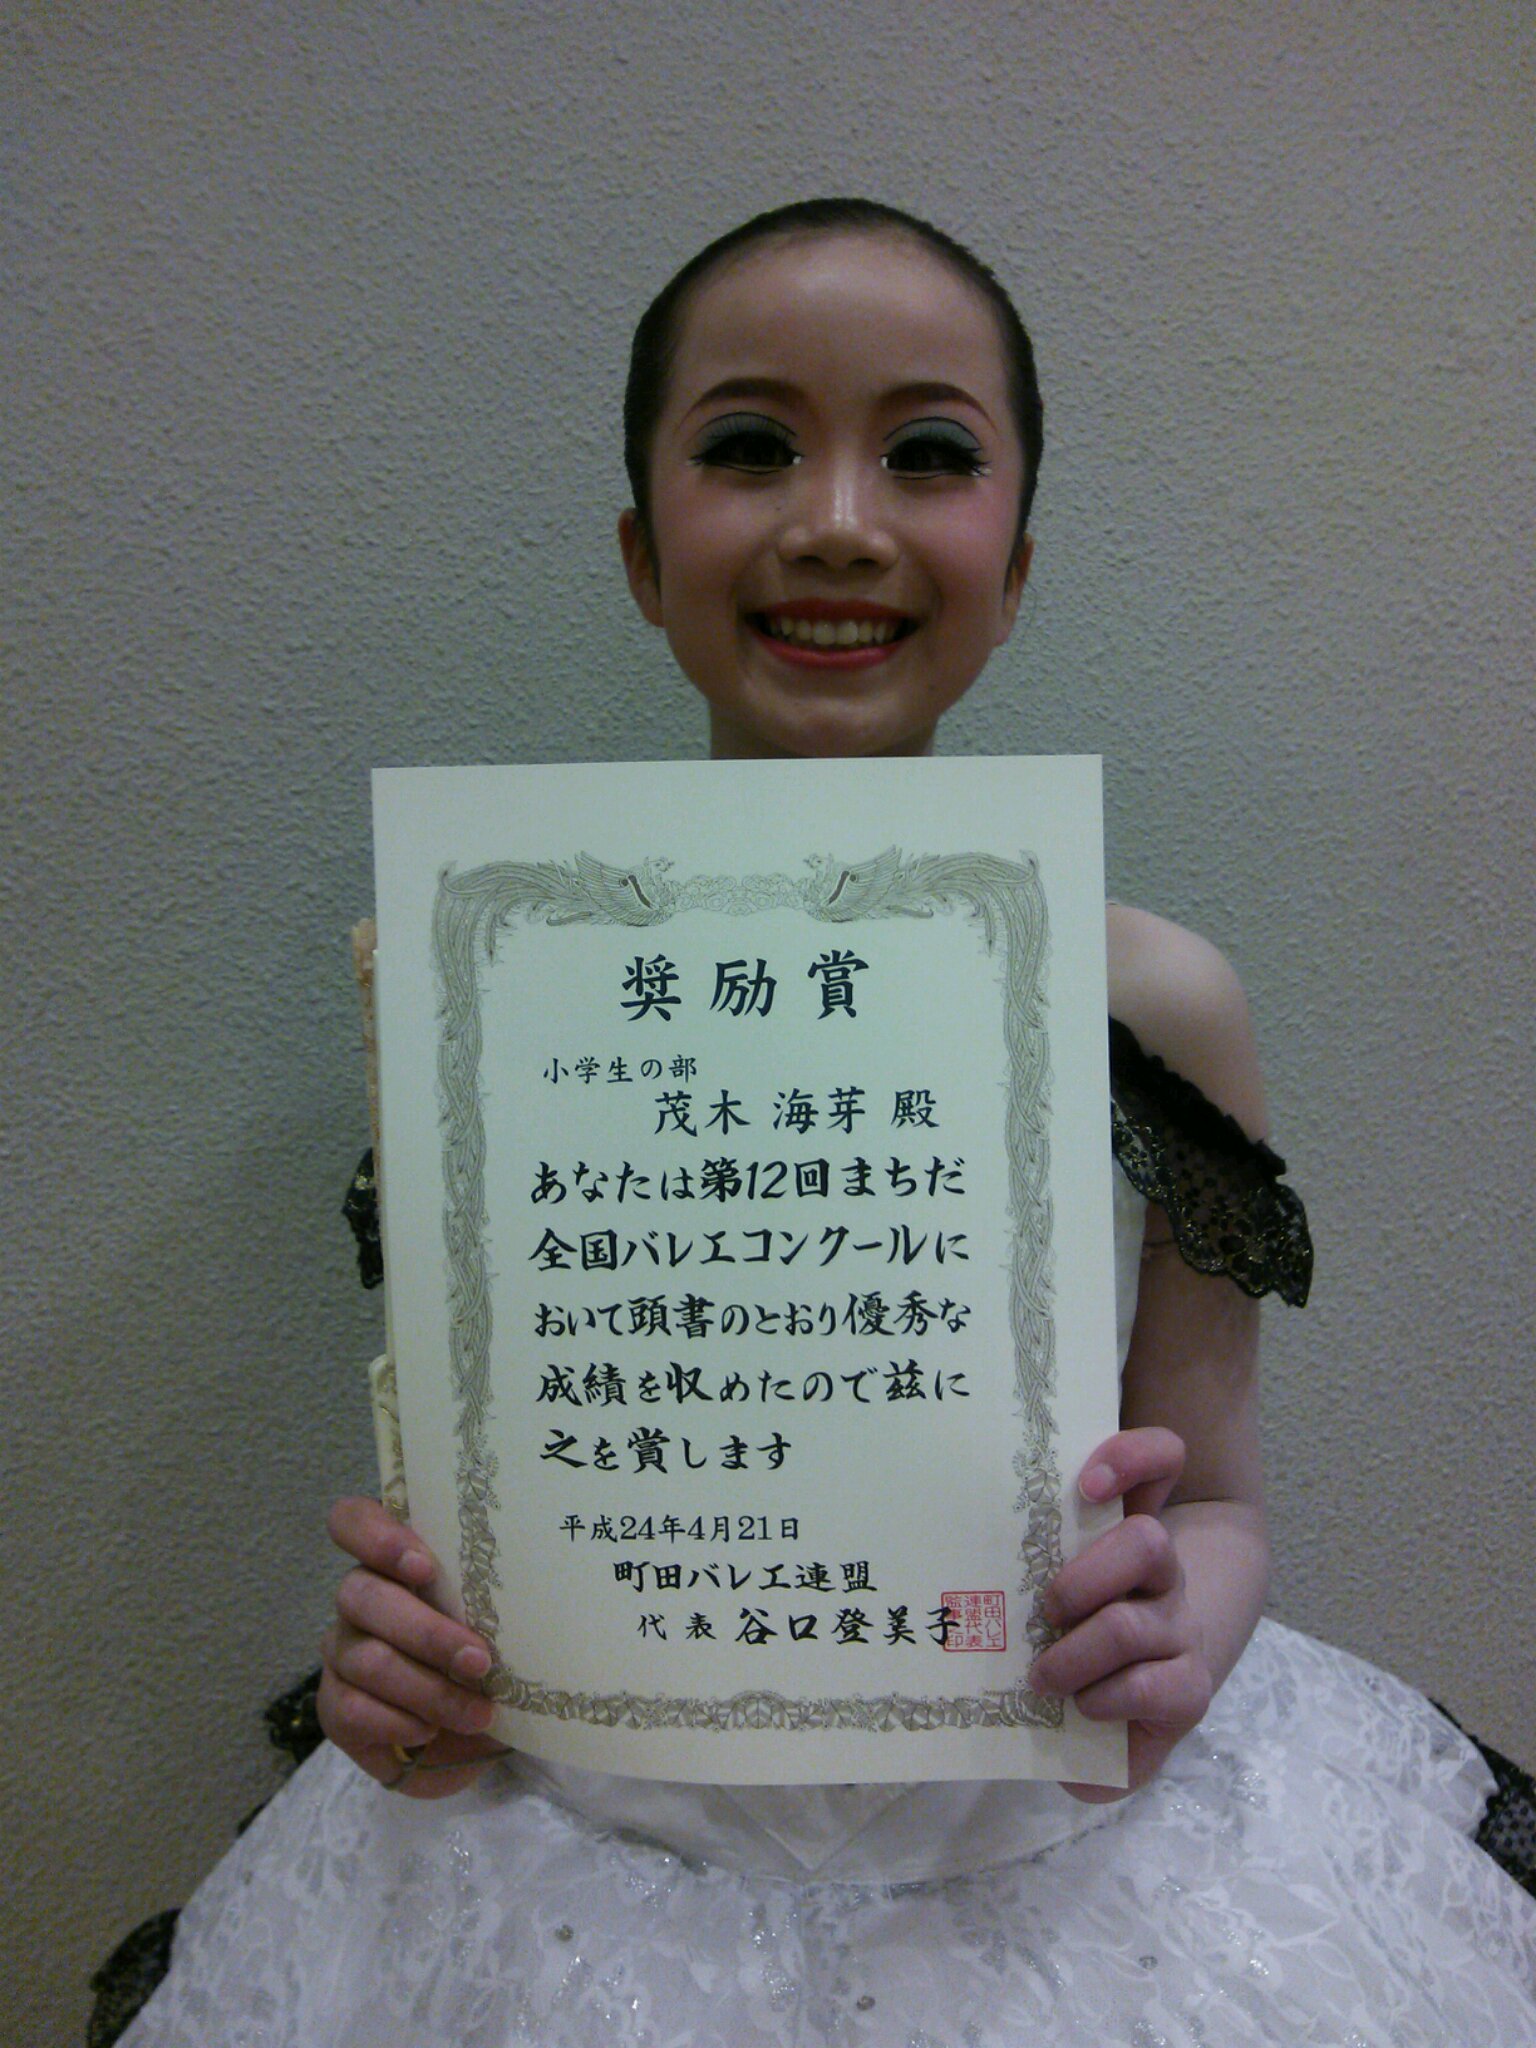 奨励賞
小学生の部
茂木 海芽 殿
あなたは第12回まちだ
全国バレエコンクールに
おいて頭書のとおり優秀な
成績を収めたので茲に
之を賞します
平成24年4月21日
町田バレエ連盟
代表 谷口登美子
町田バレエ
連盟代表
監事之印